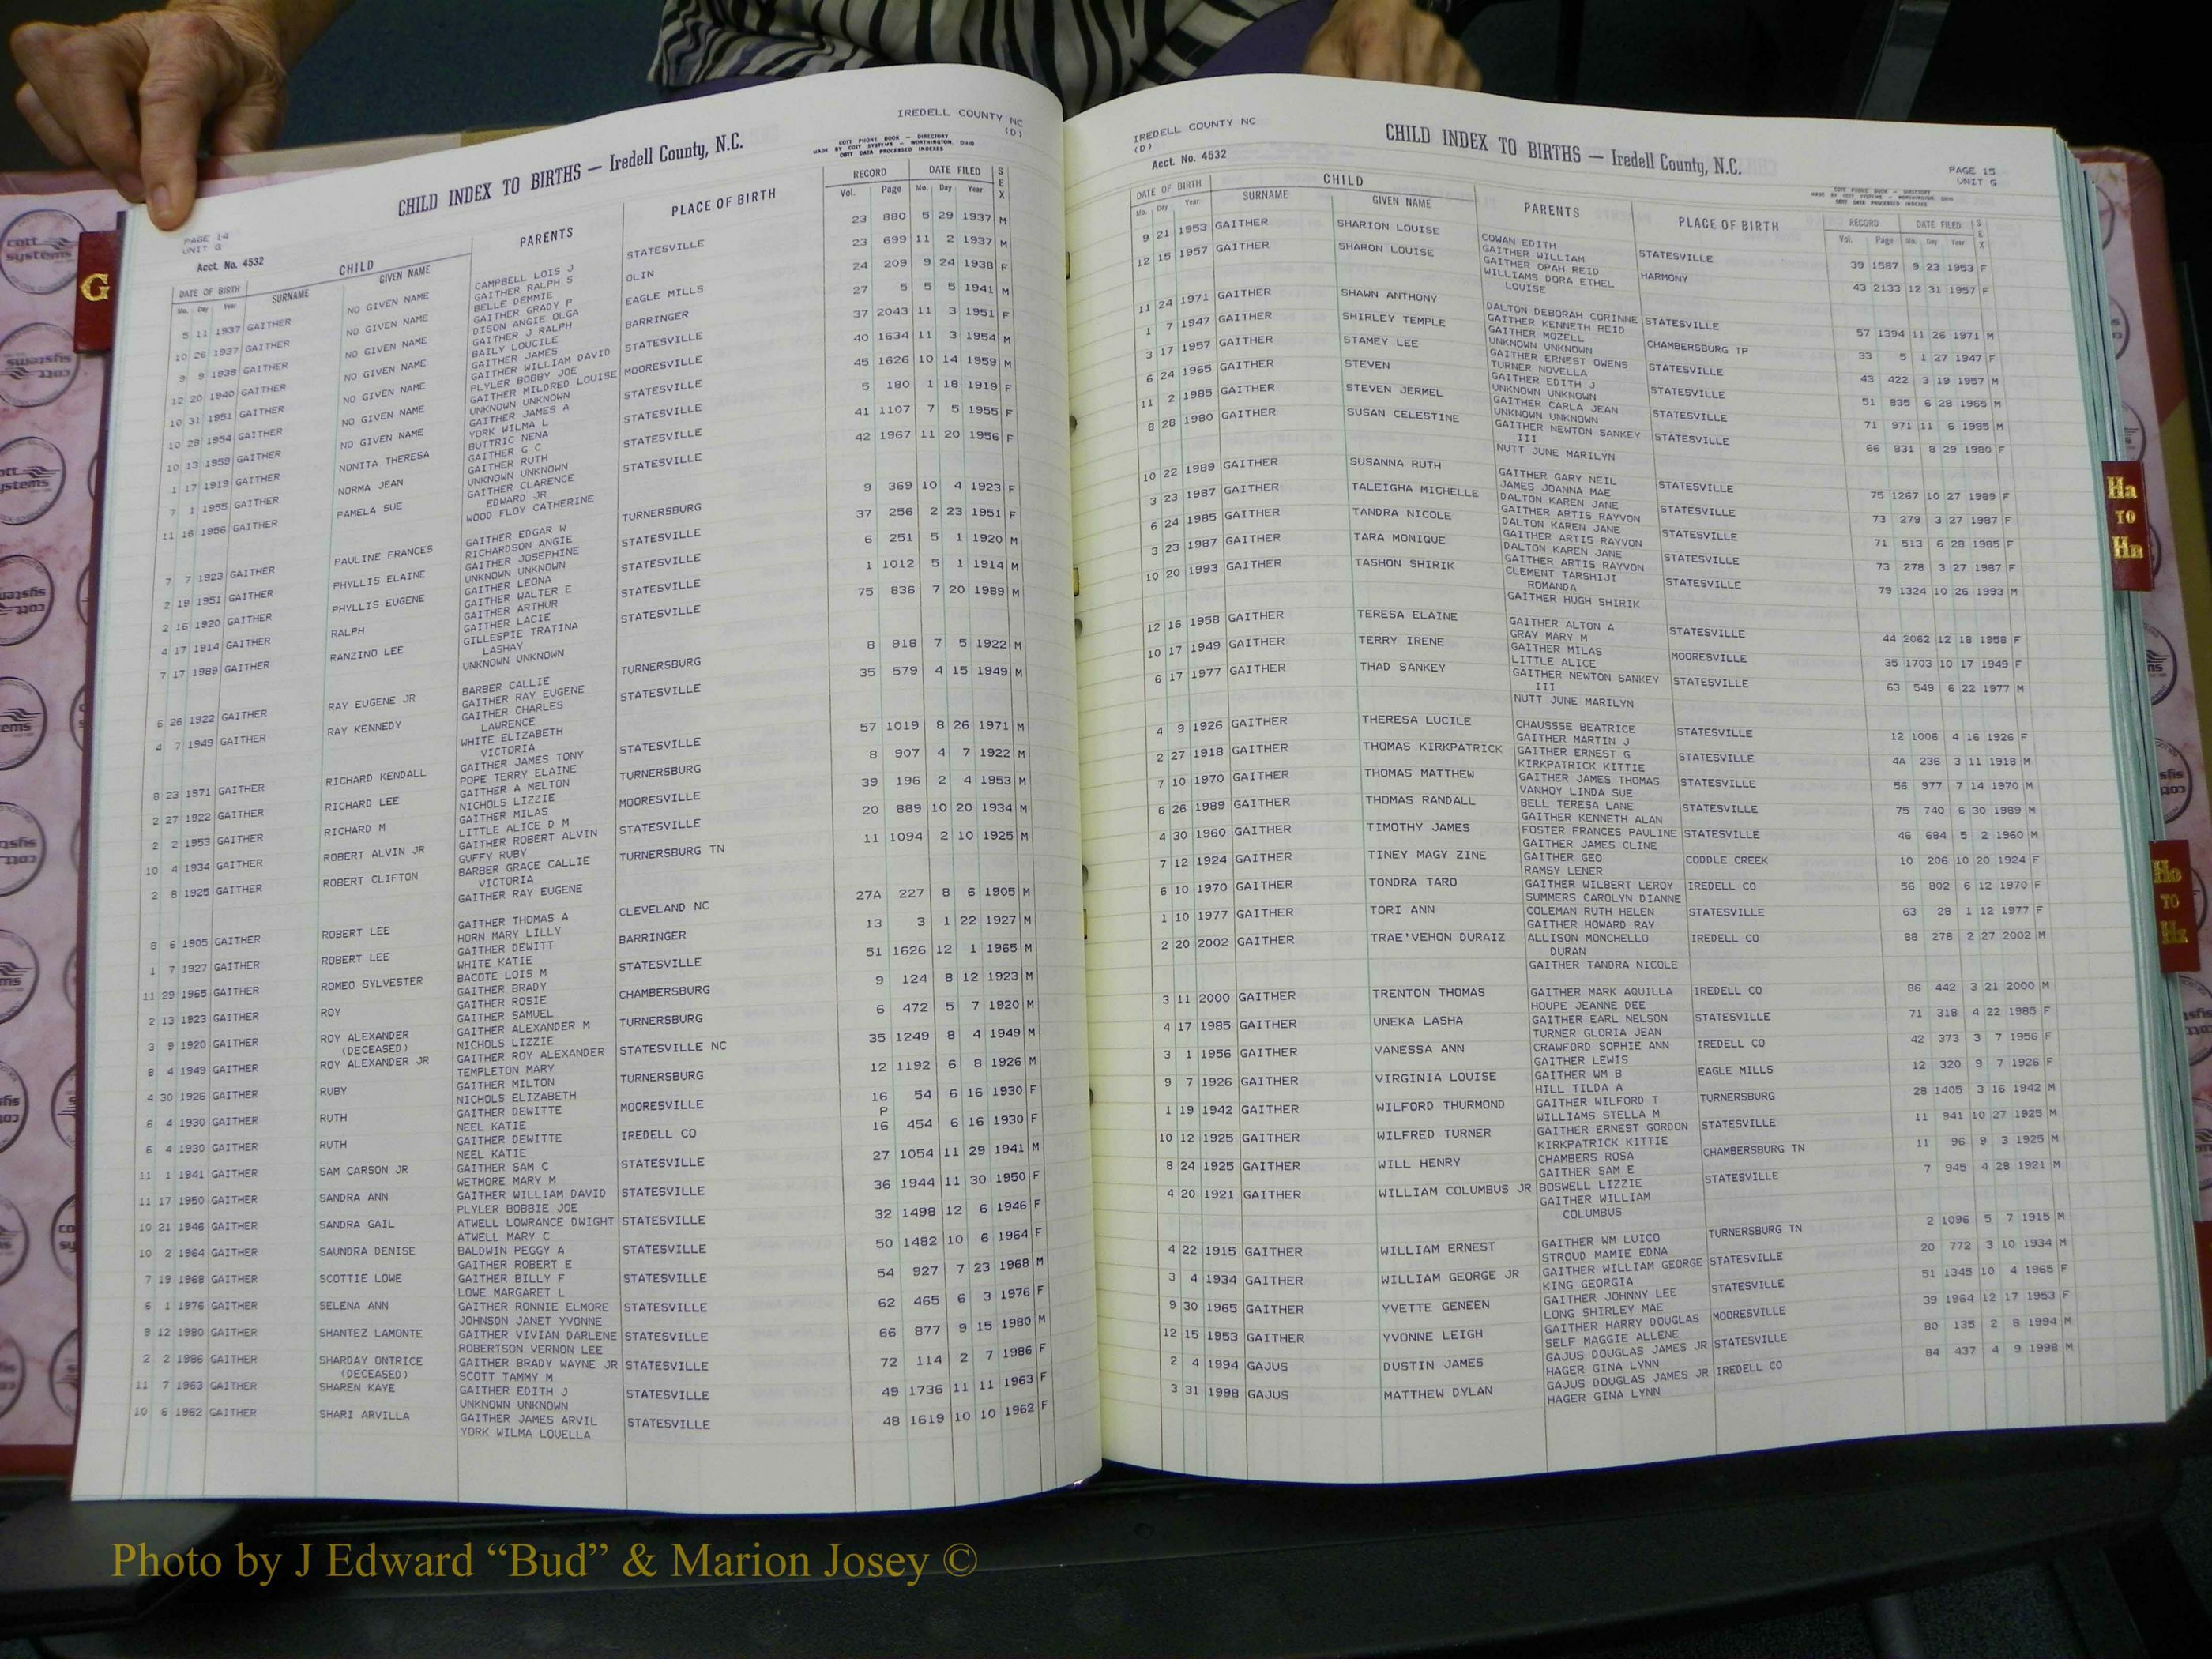 IREDELL COUNTY NC
(D)
CHILD INDEX TO BIRTHS — Iredell County, N.C.
COTT PHONE BOOK — DIRECTORY
MADE BY COTT SYSTEMS — WORTHINGTON, OHIO
COTT DATA PROCESSED INDEXES
PAGE 14
UNIT G
Acct. No. 4532
DATE OF BIRTH CHILD PARENTS PLACE OF BIRTH RECORD DATE FILED SEX
Mo. Day Year SURNAME GIVEN NAME Vol. Page Mo. Day Year
5 11 1937 GAITHER NO GIVEN NAME CAMPBELL LOIS J STATESVILLE 23 880 5 29 1937 M
GAITHER RALPH S
10 26 1937 GAITHER NO GIVEN NAME BELLE DEMMIE OLIN 23 699 11 2 1937 M
GAITHER GRADY P
9 9 1938 GAITHER NO GIVEN NAME DISON ANGIE OLGA EAGLE MILLS 24 209 9 24 1938 F
GAITHER J RALPH
12 20 1940 GAITHER NO GIVEN NAME BAILY LOUCILE BARRINGER 27 5 5 5 1941 M
GAITHER JAMES
10 31 1951 GAITHER NO GIVEN NAME GAITHER WILLIAM DAVID STATESVILLE 37 2043 11 3 1951 F
PLYLER BOBBY JOE
10 28 1954 GAITHER NO GIVEN NAME GAITHER MILDRED LOUISE MOORESVILLE 40 1634 11 3 1954 M
UNKNOWN UNKNOWN
10 13 1959 GAITHER NO GIVEN NAME GAITHER JAMES A STATESVILLE 45 1626 10 14 1959 M
YORK WILMA L
1 17 1919 GAITHER NONITA THERESA BUTTRIC NENA STATESVILLE 5 180 1 18 1919 F
GAITHER G C
7 1 1955 GAITHER NORMA JEAN GAITHER RUTH STATESVILLE 41 1107 7 5 1955 F
UNKNOWN UNKNOWN
11 16 1956 GAITHER PAMELA SUE GAITHER CLARENCE STATESVILLE 42 1967 11 20 1956 F
EDWARD JR
WOOD FLOY CATHERINE
7 7 1923 GAITHER PAULINE FRANCES GAITHER EDGAR W TURNERSBURG 9 369 10 4 1923 F
RICHARDSON ANGIE
2 19 1951 GAITHER PHYLLIS ELAINE GAITHER JOSEPHINE STATESVILLE 37 256 2 23 1951 F
UNKNOWN UNKNOWN
2 16 1920 GAITHER PHYLLIS EUGENE GAITHER LEONA STATESVILLE 6 251 5 1 1920 M
GAITHER WALTER E
4 17 1914 GAITHER RALPH GAITHER ARTHUR STATESVILLE 1 1012 5 1 1914 M
GAITHER LACIE
7 17 1989 GAITHER RANZINO LEE GILLESPIE TRATINA STATESVILLE 75 836 7 20 1989 M
LASHAY
UNKNOWN UNKNOWN
6 26 1922 GAITHER RAY EUGENE JR BARBER CALLIE TURNERSBURG 8 918 7 5 1922 M
GAITHER RAY EUGENE
4 7 1949 GAITHER RAY KENNEDY GAITHER CHARLES STATESVILLE 35 579 4 15 1949 M
LAWRENCE
WHITE ELIZABETH
VICTORIA
8 23 1971 GAITHER RICHARD KENDALL GAITHER JAMES TONY STATESVILLE 57 1019 8 26 1971 M
POPE TERRY ELAINE
2 27 1922 GAITHER RICHARD LEE GAITHER A MELTON TURNERSBURG 8 907 4 7 1922 M
NICHOLS LIZZIE
2 2 1953 GAITHER RICHARD M GAITHER MILAS MOORESVILLE 39 196 2 4 1953 M
LITTLE ALICE D M
10 4 1934 GAITHER ROBERT ALVIN JR GAITHER ROBERT ALVIN STATESVILLE 20 889 10 20 1934 M
GUFFY RUBY
2 8 1925 GAITHER ROBERT CLIFTON BARBER GRACE CALLIE TURNERSBURG TN 11 1094 2 10 1925 M
VICTORIA
GAITHER RAY EUGENE
8 6 1905 GAITHER ROBERT LEE GAITHER THOMAS A CLEVELAND NC 27A 227 8 6 1905 M
HORN MARY LILLY
1 7 1927 GAITHER ROBERT LEE GAITHER DEWITT BARRINGER 13 3 1 22 1927 M
WHITE KATIE
11 29 1965 GAITHER ROMEO SYLVESTER BACOTE LOIS M STATESVILLE 51 1626 12 1 1965 M
GAITHER BRADY
2 13 1923 GAITHER ROY GAITHER ROSIE CHAMBERSBURG 9 124 8 12 1923 M
GAITHER SAMUEL
3 9 1920 GAITHER ROY ALEXANDER GAITHER ALEXANDER M TURNERSBURG 6 472 5 7 1920 M
(DECEASED) NICHOLS LIZZIE
8 4 1949 GAITHER ROY ALEXANDER JR GAITHER ROY ALEXANDER STATESVILLE NC 35 1249 8 4 1949 M
TEMPLETON MARY
4 30 1926 GAITHER RUBY GAITHER MILTON TURNERSBURG 12 1192 6 8 1926 M
NICHOLS ELIZABETH
6 4 1930 GAITHER RUTH GAITHER DEWITTE MOORESVILLE 16 54 6 16 1930 F
NEEL KATIE P
6 4 1930 GAITHER RUTH GAITHER DEWITTE IREDELL CO 16 454 6 16 1930 F
NEEL KATIE
11 1 1941 GAITHER SAM CARSON JR GAITHER SAM C STATESVILLE 27 1054 11 29 1941 M
WETMORE MARY M
11 17 1950 GAITHER SANDRA ANN GAITHER WILLIAM DAVID STATESVILLE 36 1944 11 30 1950 F
PLYLER BOBBIE JOE
10 21 1946 GAITHER SANDRA GAIL ATWELL LOWRANCE DWIGHT STATESVILLE 32 1498 12 6 1946 F
ATWELL MARY C
10 2 1964 GAITHER SAUNDRA DENISE BALDWIN PEGGY A STATESVILLE 50 1482 10 6 1964 F
GAITHER ROBERT E
7 19 1968 GAITHER SCOTTIE LOWE GAITHER BILLY F STATESVILLE 54 927 7 23 1968 M
LOWE MARGARET L
6 1 1976 GAITHER SELENA ANN GAITHER RONNIE ELMORE STATESVILLE 62 465 6 3 1976 F
JOHNSON JANET YVONNE
9 12 1980 GAITHER SHANTEZ LAMONTE GAITHER VIVIAN DARLENE STATESVILLE 66 877 9 15 1980 M
ROBERTSON VERNON LEE
2 2 1986 GAITHER SHARDAY ONTRICE GAITHER BRADY WAYNE JR STATESVILLE 72 114 2 7 1986 F
(DECEASED) SCOTT TAMMY M
11 7 1963 GAITHER SHAREN KAYE GAITHER EDITH J STATESVILLE 49 1736 11 11 1963 F
UNKNOWN UNKNOWN
10 6 1962 GAITHER SHARI ARVILLA GAITHER JAMES ARVIL STATESVILLE 48 1619 10 10 1962 F
YORK WILMA LOUELLA
IREDELL COUNTY NC
(D)
Acct. No. 4532
CHILD INDEX TO BIRTHS — Iredell County, N.C.
PAGE 15
UNIT G
COTT PHONE BOOK — DIRECTORY
MADE BY COTT SYSTEMS — WORTHINGTON, OHIO
COTT DATA PROCESSED INDEXES
DATE OF BIRTH CHILD PARENTS PLACE OF BIRTH RECORD DATE FILED SEX
Mo. Day Year SURNAME GIVEN NAME Vol. Page Mo. Day Year
9 21 1953 GAITHER SHARION LOUISE COWAN EDITH STATESVILLE 39 1587 9 23 1953 F
GAITHER WILLIAM
12 15 1957 GAITHER SHARON LOUISE GAITHER OPAH REID HARMONY 43 2133 12 31 1957 F
WILLIAMS DORA ETHEL
LOUISE
11 24 1971 GAITHER SHAWN ANTHONY DALTON DEBORAH CORINNE STATESVILLE 57 1394 11 26 1971 M
GAITHER KENNETH REID
1 7 1947 GAITHER SHIRLEY TEMPLE GAITHER MOZELL CHAMBERSBURG TP 33 5 1 27 1947 F
UNKNOWN UNKNOWN
3 17 1957 GAITHER STAMEY LEE GAITHER ERNEST OWENS STATESVILLE 43 422 3 19 1957 M
TURNER NOVELLA
6 24 1965 GAITHER STEVEN GAITHER EDITH J STATESVILLE 51 835 6 28 1965 M
UNKNOWN UNKNOWN
11 2 1985 GAITHER STEVEN JERMEL GAITHER CARLA JEAN STATESVILLE 71 971 11 6 1985 M
UNKNOWN UNKNOWN
8 28 1980 GAITHER SUSAN CELESTINE GAITHER NEWTON SANKEY STATESVILLE 66 831 8 29 1980 F
III
NUTT JUNE MARILYN
10 22 1989 GAITHER SUSANNA RUTH GAITHER GARY NEIL STATESVILLE 75 1267 10 27 1989 F
JAMES JOANNA MAE
3 23 1987 GAITHER TALEIGHA MICHELLE DALTON KAREN JANE STATESVILLE 73 279 3 27 1987 F
GAITHER ARTIS RAYVON
6 24 1985 GAITHER TANDRA NICOLE DALTON KAREN JANE STATESVILLE 71 513 6 28 1985 F
GAITHER ARTIS RAYVON
3 23 1987 GAITHER TARA MONIQUE DALTON KAREN JANE STATESVILLE 73 278 3 27 1987 F
GAITHER ARTIS RAYVON
10 20 1993 GAITHER TASHON SHIRIK CLEMENT TARSHIJI STATESVILLE 79 1324 10 26 1993 M
ROMANDA
GAITHER HUGH SHIRIK
12 16 1958 GAITHER TERESA ELAINE GAITHER ALTON A STATESVILLE 44 2062 12 18 1958 F
GRAY MARY M
10 17 1949 GAITHER TERRY IRENE GAITHER MILAS MOORESVILLE 35 1703 10 17 1949 F
LITTLE ALICE
6 17 1977 GAITHER THAD SANKEY GAITHER NEWTON SANKEY STATESVILLE 63 549 6 22 1977 M
III
NUTT JUNE MARILYN
4 9 1926 GAITHER THERESA LUCILE CHAUSSSE BEATRICE STATESVILLE 12 1006 4 16 1926 F
GAITHER MARTIN J
2 27 1918 GAITHER THOMAS KIRKPATRICK GAITHER ERNEST G STATESVILLE 4A 236 3 11 1918 M
KIRKPATRICK KITTIE
7 10 1970 GAITHER THOMAS MATTHEW GAITHER JAMES THOMAS STATESVILLE 56 977 7 14 1970 M
VANHOY LINDA SUE
6 26 1989 GAITHER THOMAS RANDALL BELL TERESA LANE STATESVILLE 75 740 6 30 1989 M
GAITHER KENNETH ALAN
4 30 1960 GAITHER TIMOTHY JAMES FOSTER FRANCES PAULINE STATESVILLE 46 684 5 2 1960 M
GAITHER JAMES CLINE
7 12 1924 GAITHER TINEY MAGY ZINE GAITHER GEO CODDLE CREEK 10 206 10 20 1924 F
RAMSY LENER
6 10 1970 GAITHER TONDRA TARO GAITHER WILBERT LEROY IREDELL CO 56 802 6 12 1970 F
SUMMERS CAROLYN DIANNE
1 10 1977 GAITHER TORI ANN COLEMAN RUTH HELEN STATESVILLE 63 28 1 12 1977 F
GAITHER HOWARD RAY
2 20 2002 GAITHER TRAE'VEHON DURAIZ ALLISON MONCHELLO IREDELL CO 88 278 2 27 2002 M
DURAN
GAITHER TANDRA NICOLE
3 11 2000 GAITHER TRENTON THOMAS GAITHER MARK AQUILLA IREDELL CO 86 442 3 21 2000 M
HOUPE JEANNE DEE
4 17 1985 GAITHER UNEKA LASHA GAITHER EARL NELSON STATESVILLE 71 318 4 22 1985 F
TURNER GLORIA JEAN
3 1 1956 GAITHER VANESSA ANN CRAWFORD SOPHIE ANN IREDELL CO 42 373 3 7 1956 F
GAITHER LEWIS
9 7 1926 GAITHER VIRGINIA LOUISE GAITHER WM B EAGLE MILLS 12 320 9 7 1926 F
HILL TILDA A
1 19 1942 GAITHER WILFORD THURMOND GAITHER WILFORD T TURNERSBURG 28 1405 3 16 1942 M
WILLIAMS STELLA M
10 12 1925 GAITHER WILFRED TURNER GAITHER ERNEST GORDON STATESVILLE 11 941 10 27 1925 M
KIRKPATRICK KITTIE
8 24 1925 GAITHER WILL HENRY CHAMBERS ROSA CHAMBERSBURG TN 11 96 9 3 1925 M
GAITHER SAM E
4 20 1921 GAITHER WILLIAM COLUMBUS JR BOSWELL LIZZIE STATESVILLE 7 945 4 28 1921 M
GAITHER WILLIAM
COLUMBUS
4 22 1915 GAITHER WILLIAM ERNEST GAITHER WM LUICO TURNERSBURG TN 2 1096 5 7 1915 M
STROUD MAMIE EDNA
3 4 1934 GAITHER WILLIAM GEORGE JR GAITHER WILLIAM GEORGE STATESVILLE 20 772 3 10 1934 M
KING GEORGIA
9 30 1965 GAITHER YVETTE GENEEN GAITHER JOHNNY LEE STATESVILLE 51 1345 10 4 1965 F
LONG SHIRLEY MAE
12 15 1953 GAITHER YVONNE LEIGH GAITHER HARRY DOUGLAS MOORESVILLE 39 1964 12 17 1953 F
SELF MAGGIE ALLENE
2 4 1994 GAJUS DUSTIN JAMES GAJUS DOUGLAS JAMES JR STATESVILLE 80 135 2 8 1994 M
HAGER GINA LYNN
3 31 1998 GAJUS MATTHEW DYLAN GAJUS DOUGLAS JAMES JR IREDELL CO 84 437 4 9 1998 M
HAGER GINA LYNN
G
Ha
TO
Hn
Ho
TO
Hz
cott
systems
Photo by J Edward “Bud” & Marion Josey ©